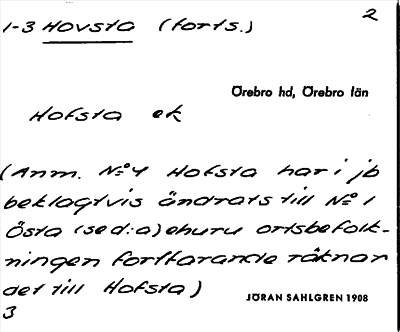 1-3 Hovsta (forts.) 2
Örebro hd, Örebro län
Hofsta ek
(Anm. No 4 Hofsta har i jb
beklagtvis ändrats till No 1
Östa (se d:a) ehuru ortsbefolk-
ningen fortfarande räknar
det till Hofsta)
JÖRAN SAHLGREN 1908
3